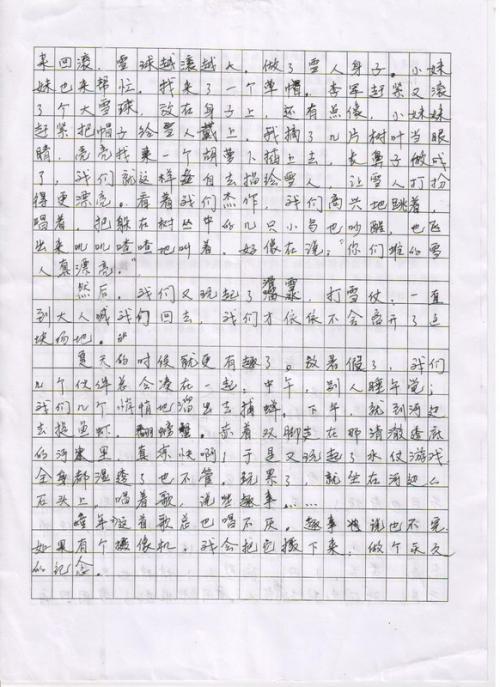 来回滚，雪球越滚越大。做了雪人身子。小妹
妹也来帮忙，找来了一个草帽。李军赶紧又滚
了个大雪球，放在身子上，还有点像，小妹妹
赶紧把帽子给雪人戴上，我摘了几片树叶当眼
睛，亮亮找来一个胡萝卜插上去，长鼻子做成
了，我们就这样各自去描绘雪人，让雪人打扮
得更漂亮。看着我们杰作，我们高兴地跳着，
唱着，把躲在树丛中的几只小鸟也吵醒，也飞
出来叽叽喳喳地叫着，好像在说："你们堆的雪
人真漂亮。"
然后，我们又玩起了滑雪，打雪仗，一直
到大人喊我们回去，我们才依依不舍离开了这
块场地。
夏天的时候就更有趣了。放暑假了，我们
几个伙伴总会凑在一起，中午，别人睡午觉；
我们几个悄悄地溜出去捕蝉。下午，就到河边
去捉鱼虾，翻螃蟹。赤着双脚走在那清澈透底
的河水里，真凉快啊！于是又玩起了水仗游戏
全身都湿透了也不管。玩累了，就坐在河边
石头上，唱着歌，说些趣事……
童年这首歌总也唱不厌。趣事 说也不完
如果有个摄像机，我会把它摄下来，做个永久
的记念。